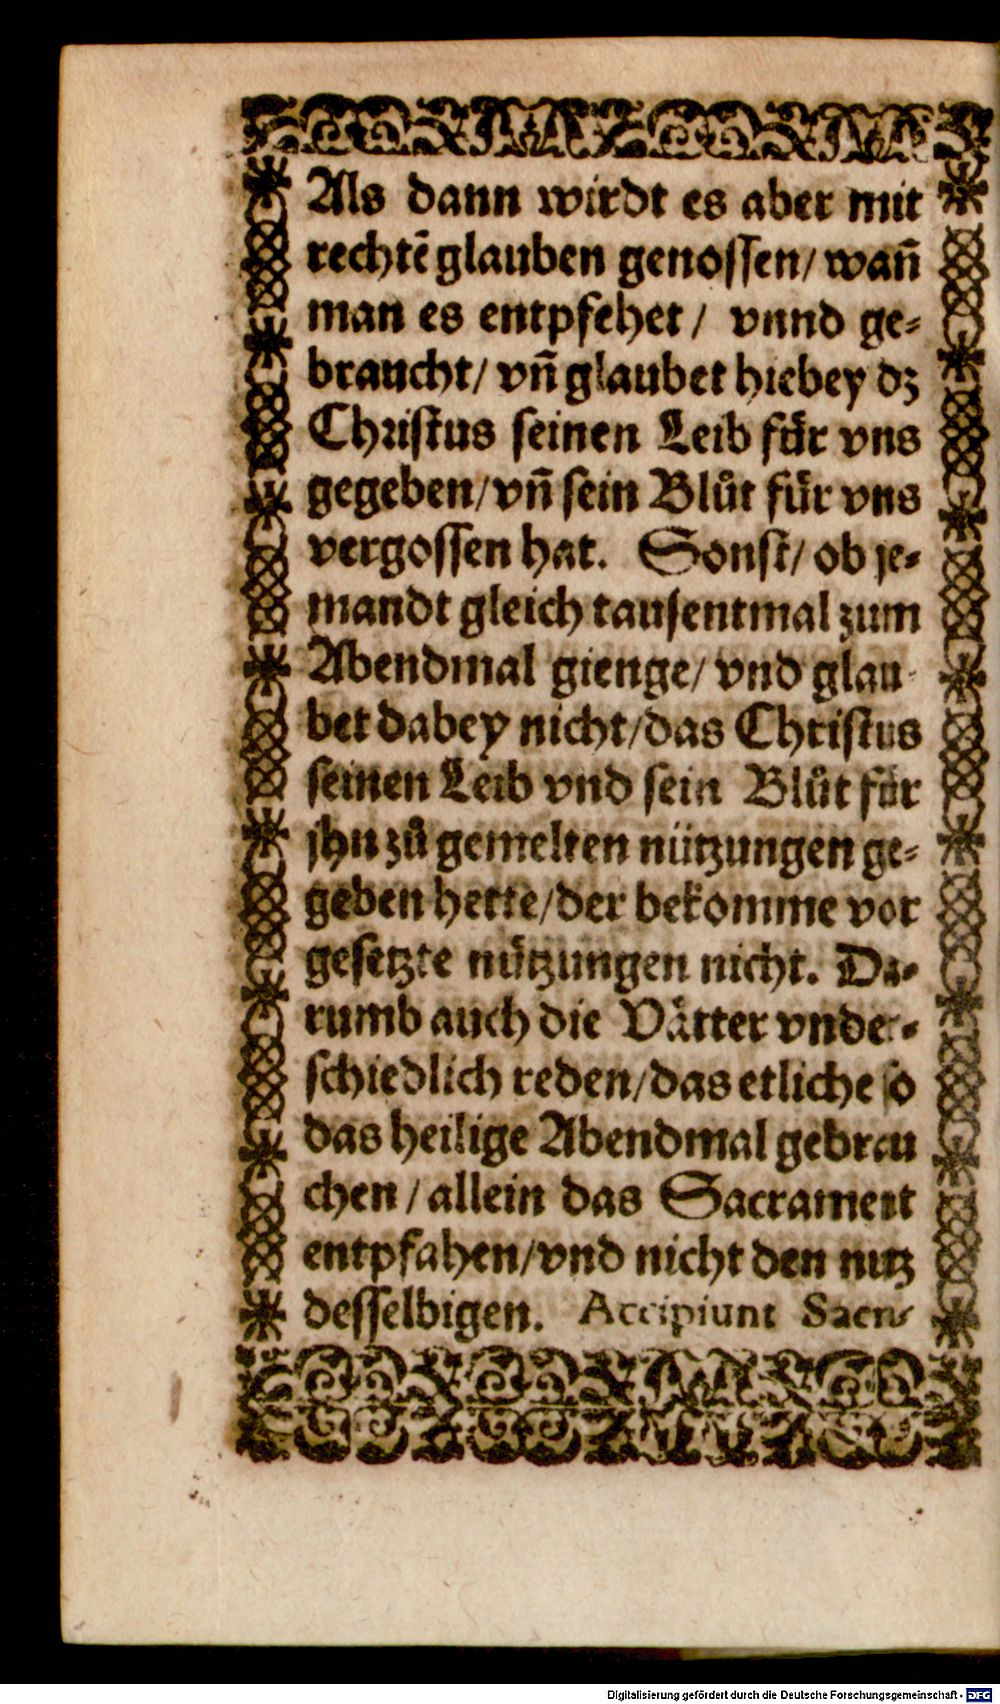 Als dann wirdt es aber mit
rechtẽ glauben genossen/ wañ
man es entpfehet/ vnnd ge-
braucht/ vñ glaubet hiebey dz
Christus seinen Leib fuͤr vns
gegeben/ vñ sein Bluͦt fuͤr vns
vergossen hat. Sonst/ ob je-
mandt gleich tausentmal zum
Abendmal gienge/ vnd glau-
bet dabey nicht/ das Christus
seinen Leib vnd sein Bluͦt fuͤr
jhn zuͦ gemelten nützungen ge-
geben hette/ der bekomme vor
gesetzte nuͤtzungen nicht. Da-
rumb auch die Vaͤtter vnder-
schiedlich reden/ das etliche so
das heilige Abendmal gebrau
chen/ allein das Sacrament
entpfahen/ vnd nicht den nutz
desselbigen. Accipiunt Sacra-
Digitalisierung gefördert durch die Deutsche Forschungsgemeinschaft - DFG